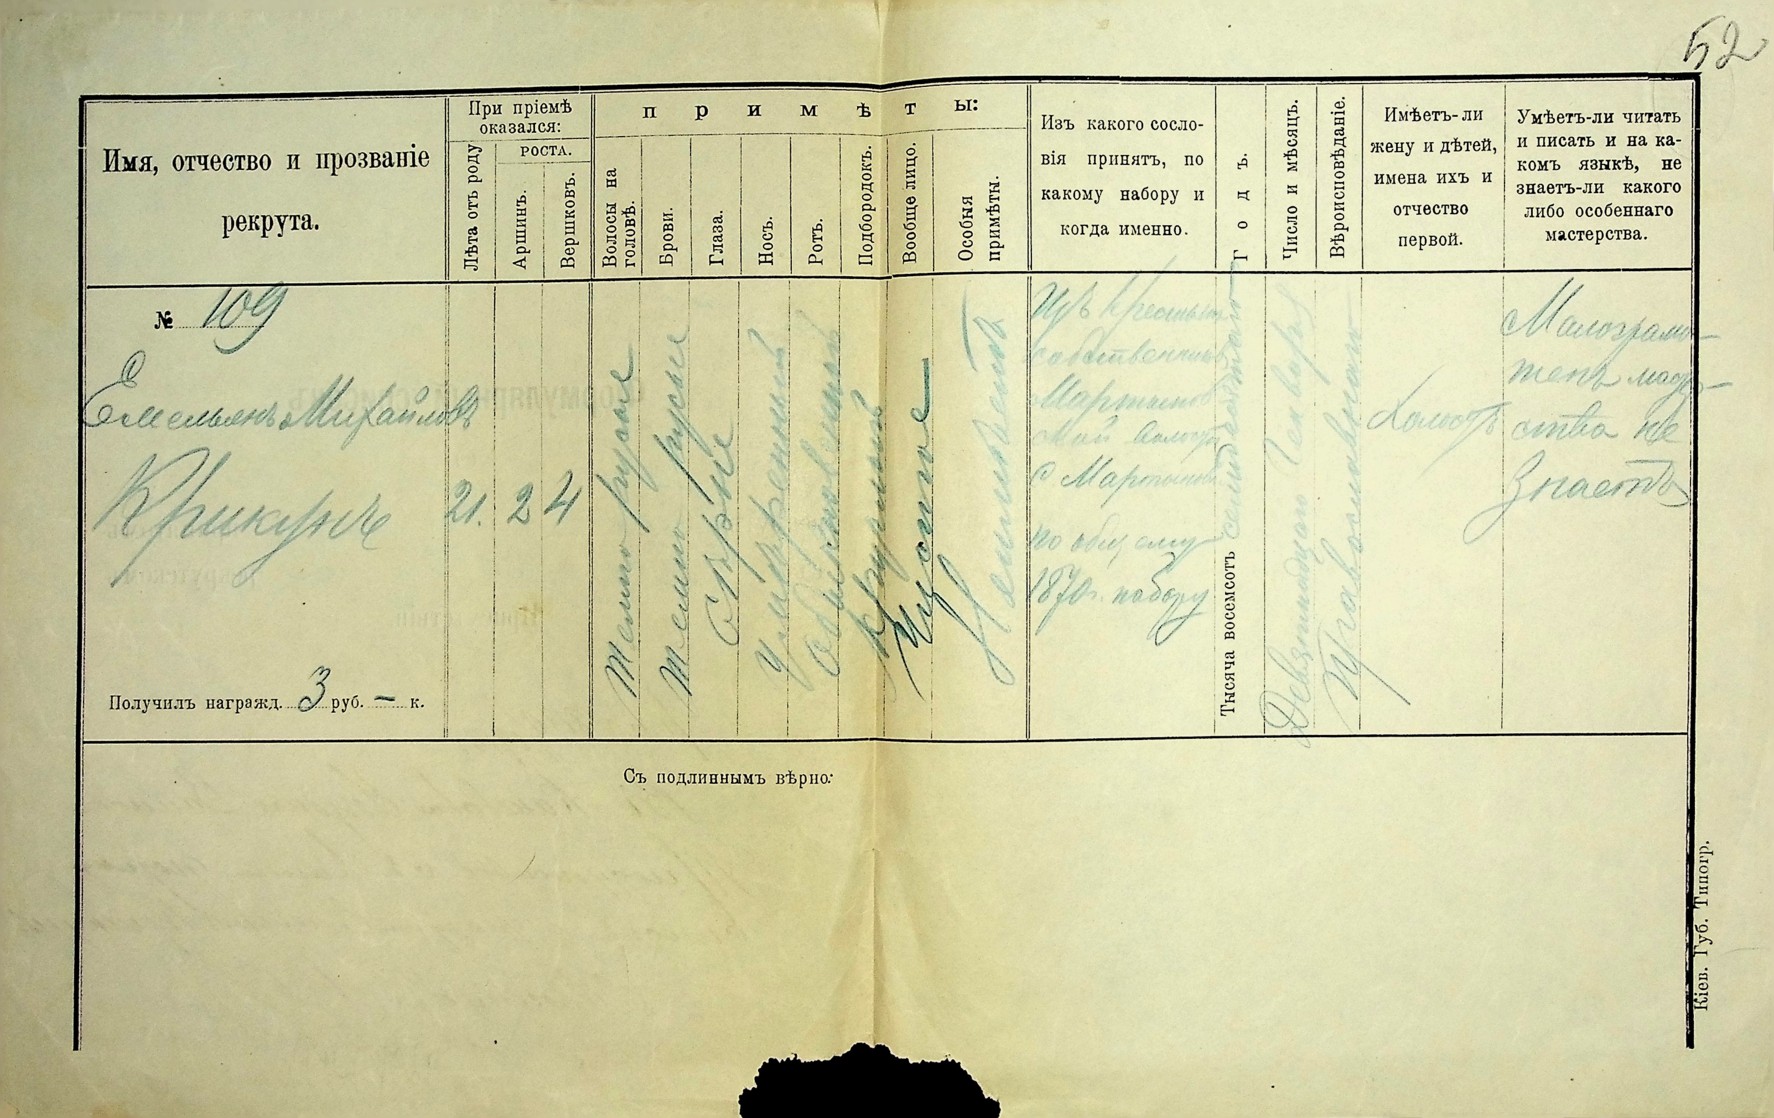 52
Имя, отчество и прозваніе
рекрута.
При пріемѣ
оказался:
Лѣта отъ роду
РОСТА.
Аршинъ.
Вершковъ.
ПРИМѢТЫ:
Волосы на
головѣ.
Брови.
Глаза.
Носъ.
Ротъ.
Подбородокъ.
Вообще лицо.
Особыя
примѣты.
Изъ какого сосло-
вія принятъ, по
какому набору и
когда именно.
Годъ.
Число и мѣсяцъ.
Вѣроисповѣданіе.
Имѣетъ-ли
жену и дѣтей,
имена ихъ и
отчество
первой.
Умѣетъ-ли читать
и писать и на ка-
комъ языкѣ, не
знаетъ-ли какого
либо особеннаго
мастерства.
№ 109
Емельянъ Михайловъ
Крикунъ
Получилъ награжд. 3 руб. — к.
21.
2
4
Темно русые
Темно русые
Сѣрые
Умѣренный
Обыкновенный
Круглый
Чистое
Неимѣетъ
Изъ Крестьянъ
собственник
Мартынов
ской волости
с Мартыновк
по общему
1870г. набору
Тысяча восемсотъ семидесятаго
Января
Православнаго
Холостъ
Малограмо-
тенъ маст-
ства не
Знаетъ
Съ подлиннымъ вѣрно:
Кіев. Губ. Типогр.